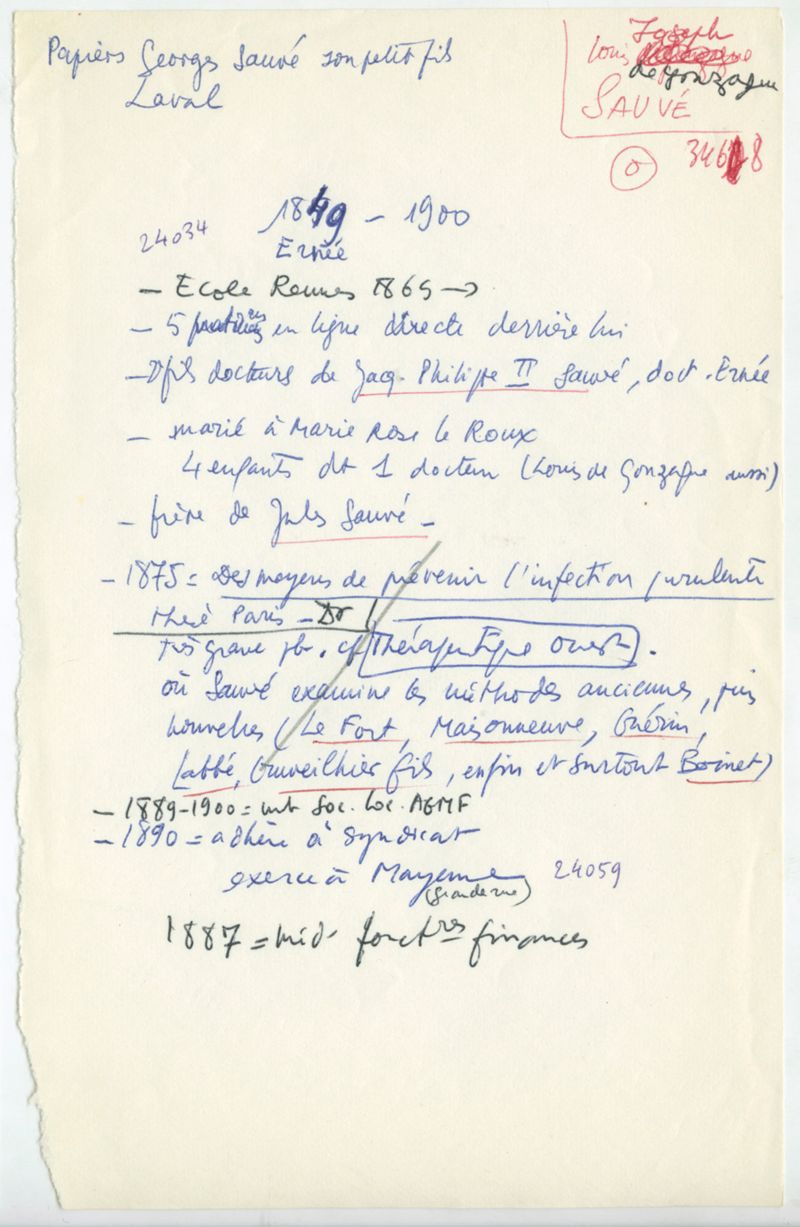 Papiers Georges Sauvé son petit fils
Laval
Joseph
Louis
de Gonzague
SAUVÉ
O 34618
24034
1849 - 1900
Ernée
- Ecole Rennes 1865 →
- 5 en ligne directe derrière lui
- fils docteurs de Jacq. Philippe II Sauvé, doct. Ernée
- marié à Marie Rose le Roux
4 enfants dt 1 docteur (Louis de Gonzague aussi)
- frère de Jules Sauvé -
- 1875 = Des moyens de prévenir l'infection purulente
thèse Paris - Dr
très grave pb. cf Thérapeutique Ouest).
où Sauvé examine les méthodes anciennes, puis
nouvelles (Le Fort, Maisonneuve, Guérin,
Labbé, Cruveilhier fils, enfin et surtout Boinet)
- 1889-1900 = mb Soc. Loc. AGMF
- 1890 = adhère à syndicat
exerce à Mayenne 24059
(Grande rue)
1887 = méd. fonctres finances